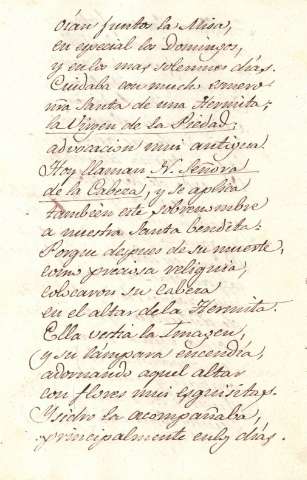 oían junto la Misa,
en especial los Domingos,
y en los mas solemnes días.
Cuidaba con mucho esmero
ñra Santa de una Hermita;
la Virgen de la Piedad,
advocacion mui antigua.
Hoy llaman N. Señora
de la Cabeza, y se aplica
tambien este sobrenombre
a nuestra Santa bendita:
Porque despues de su muerte,
como preciosa reliquia,
colocaron su cabeza
en el altar de la Hermita.
Ella vestia la Imagen,
y su lampara encendía,
adornando aquel altar
con flores mui esquisitas.
Ysidro la acompañaba,
principalmente en los días